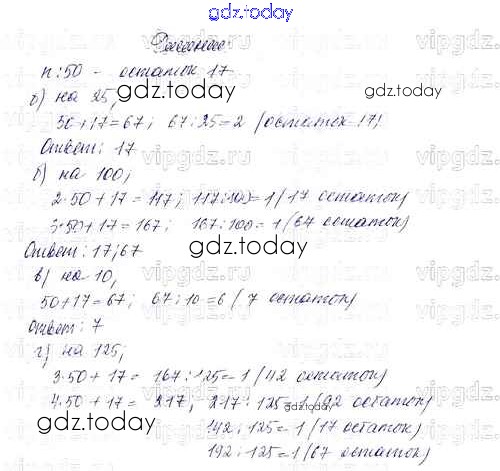 gdz.today
Решение
n:50 - остаток 17
gdz.today
б) на 25,
50+17=67; 67:25=2 (остаток 17)
Ответ: 17
б) на 100,
2·50+17=117; 117:100=1 (17 остаток)
3·50+17=167; 167:100=1 (67 остаток)
Ответ: 17; 67
gdz.today
в) на 10,
50+17=67; 67:10=6 (7 остаток)
Ответ: 7
gdz.today
г) на 125,
3·50+17= 167:125=1 (42 остаток)
4·50+17= 217, 217:125=1 (92 остаток)
gdz.today
142:125=1 (17 остаток)
192:125=1 (67 остаток)